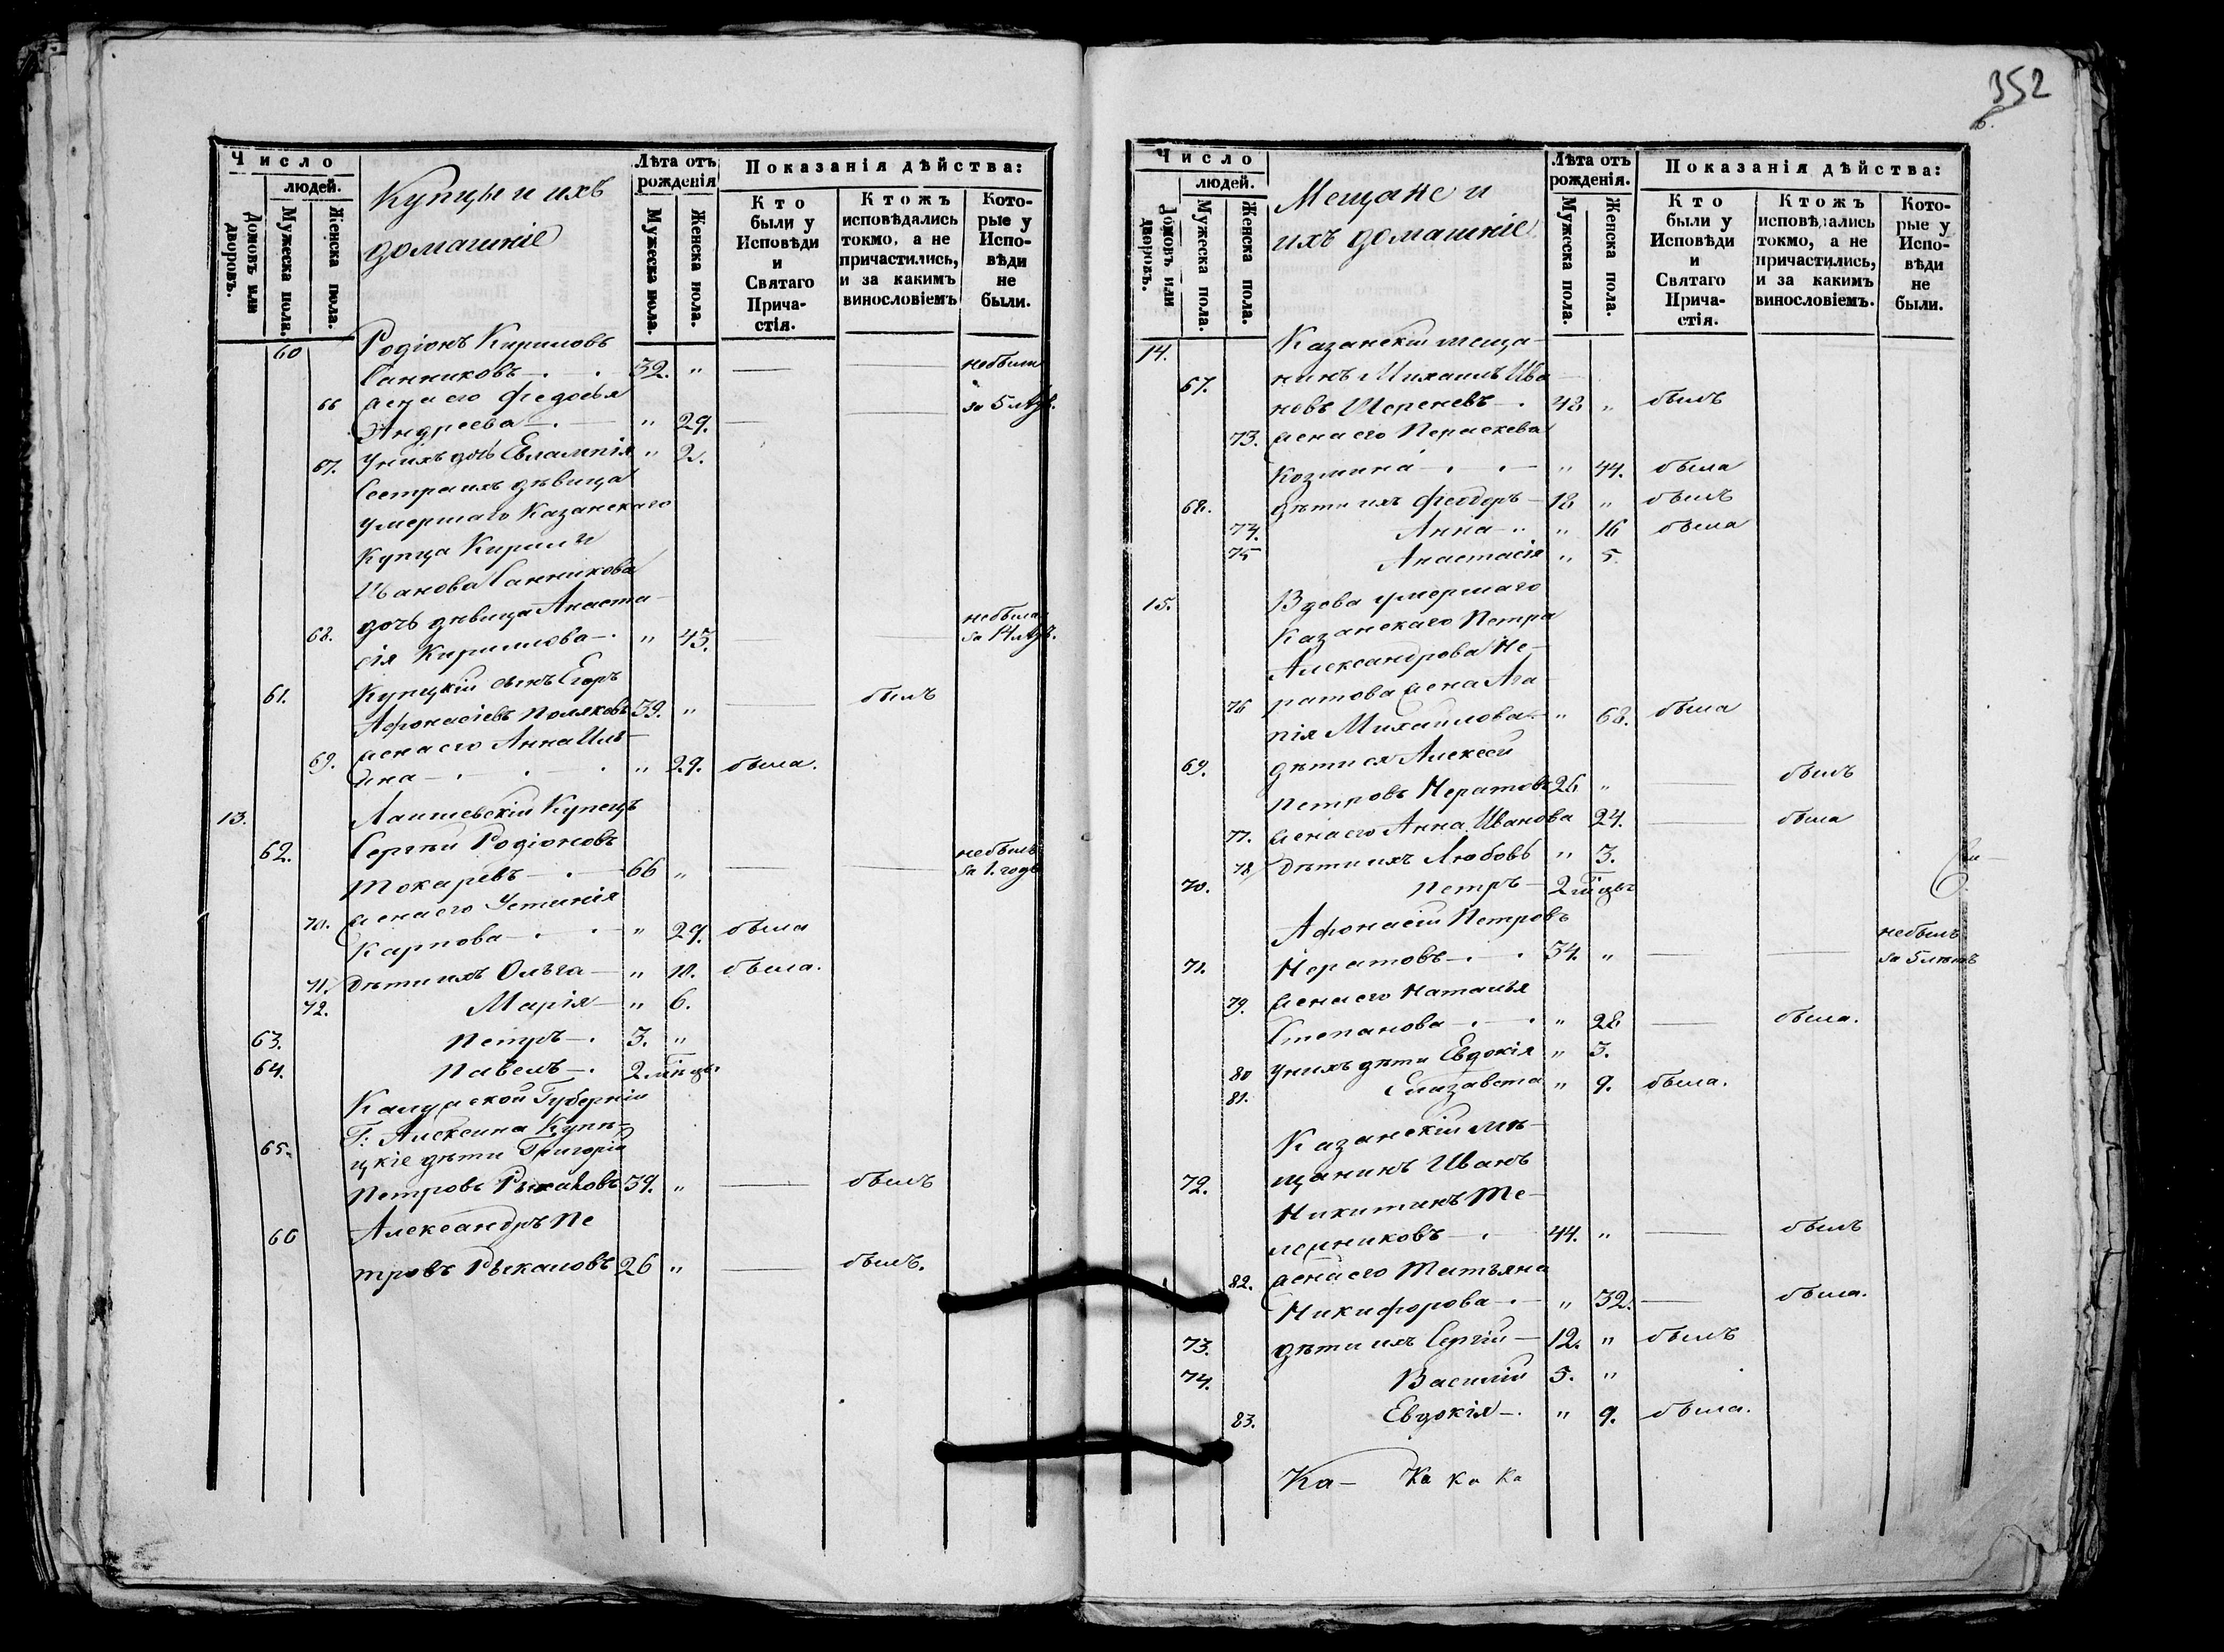 Число
людей.
Домовъ или дворовъ.
Мужеска пола.
Женска пола.
Купцы и ихъ
домашніе
Лѣта отъ
рожденія
Мужеска пола.
Женска пола.
Показанія дѣйства:
Кто
были у
Исповѣди
и
Святаго
Прича-
стія.
Ктожъ
исповѣдались
токмо, а не
причастились,
и за какимъ
винословіемъ
Кото-
рые у
Испо-
вѣди
не
были.
60 Родіонъ Кириловъ
Санниковъ 32. " небылъ
66 жена его Федосья за 5 лѣтъ.
Андреева " 29.
67. У нихъ дочь Евлампія " 2.
Сестра ихъ дѣвица
умершаго Казанскаго
Купца Кирилы
Иванова Санникова
дочь дѣвица Анаста- небыла
68. сія Кирилова " 45. за 14 лѣтъ.
61. Купецкій сынъ Егоръ
Афонасіевъ Поляковъ 39. " былъ
69. жена его Анна Иль-
ина " 29. была.
13. Лаишевскій Купецъ
62. Сергѣй Родіоновъ небылъ
Токаревъ 66 " за 1. годъ
70. жена его Устинія
Карпова " 29. была
71. Дѣти ихъ Ольга " 11. была.
72. Марія " 6.
63. Петръ 3. "
64. Павелъ 2 мѣцы.
Калужской Губерніи
Г: Алексина Купѣ-
65. цкіе дѣти Григорій
Петровъ Рыкаловъ 39. " былъ
66 Александръ Пе
тровъ Рыкаловъ 26 " былъ.
352
Число
людей.
Домовъ или дворовъ.
Мужеска пола.
Женска пола.
Мещане и
ихъ домашніе
Лѣта отъ
рожденія.
Мужеска пола.
Женска пола.
Показанія дѣйства:
Кто
были у
Исповѣди
и
Святаго
Прича-
стія.
Ктожъ
исповѣдались
токмо, а не
причастились,
и за какимъ
винословіемъ.
Кото-
рые у
Испо-
вѣди
не
были.
14. Казанскій меща-
67. нинъ Михаилъ Ива
новъ Шереневъ 48 " былъ
73. жена его Параскева
Козмина " 44. была
68. дѣти ихъ Феодоръ 18 " былъ
74. Анна " 16 была
75 Анастасія " 5.
15. Вдова умершаго
Казанскаго Петра
Александрова Не-
76 ратова жена Ага-
пія Михайлова " 68. была
69. дѣти ея Алексѣй
Петровъ Нератовъ 26 " былъ
77. жена его Анна Иванова 24. была
78 Дѣти ихъ Любовь " 3.
70. Петръ 2 мѣцы
Афонасій Петровъ небылъ
71. Нератовъ 34. " за 5 лѣтъ
79. жена его Наталья
Степанова " 28 была.
80 У нихъ дѣти Евдокія " 3.
81. Елизавета " 9. была.
Казанскій мѣ-
72. щанинъ Иванъ
Никитинъ Те-
лешниковъ 44. " былъ
82. жена его Татьяна
Никифорова " 32. была.
73. дѣти ихъ Сергій 12. " былъ
74. Василій 5. "
83. Евдокія " 9. была.
Ка- Ка Ка Ка